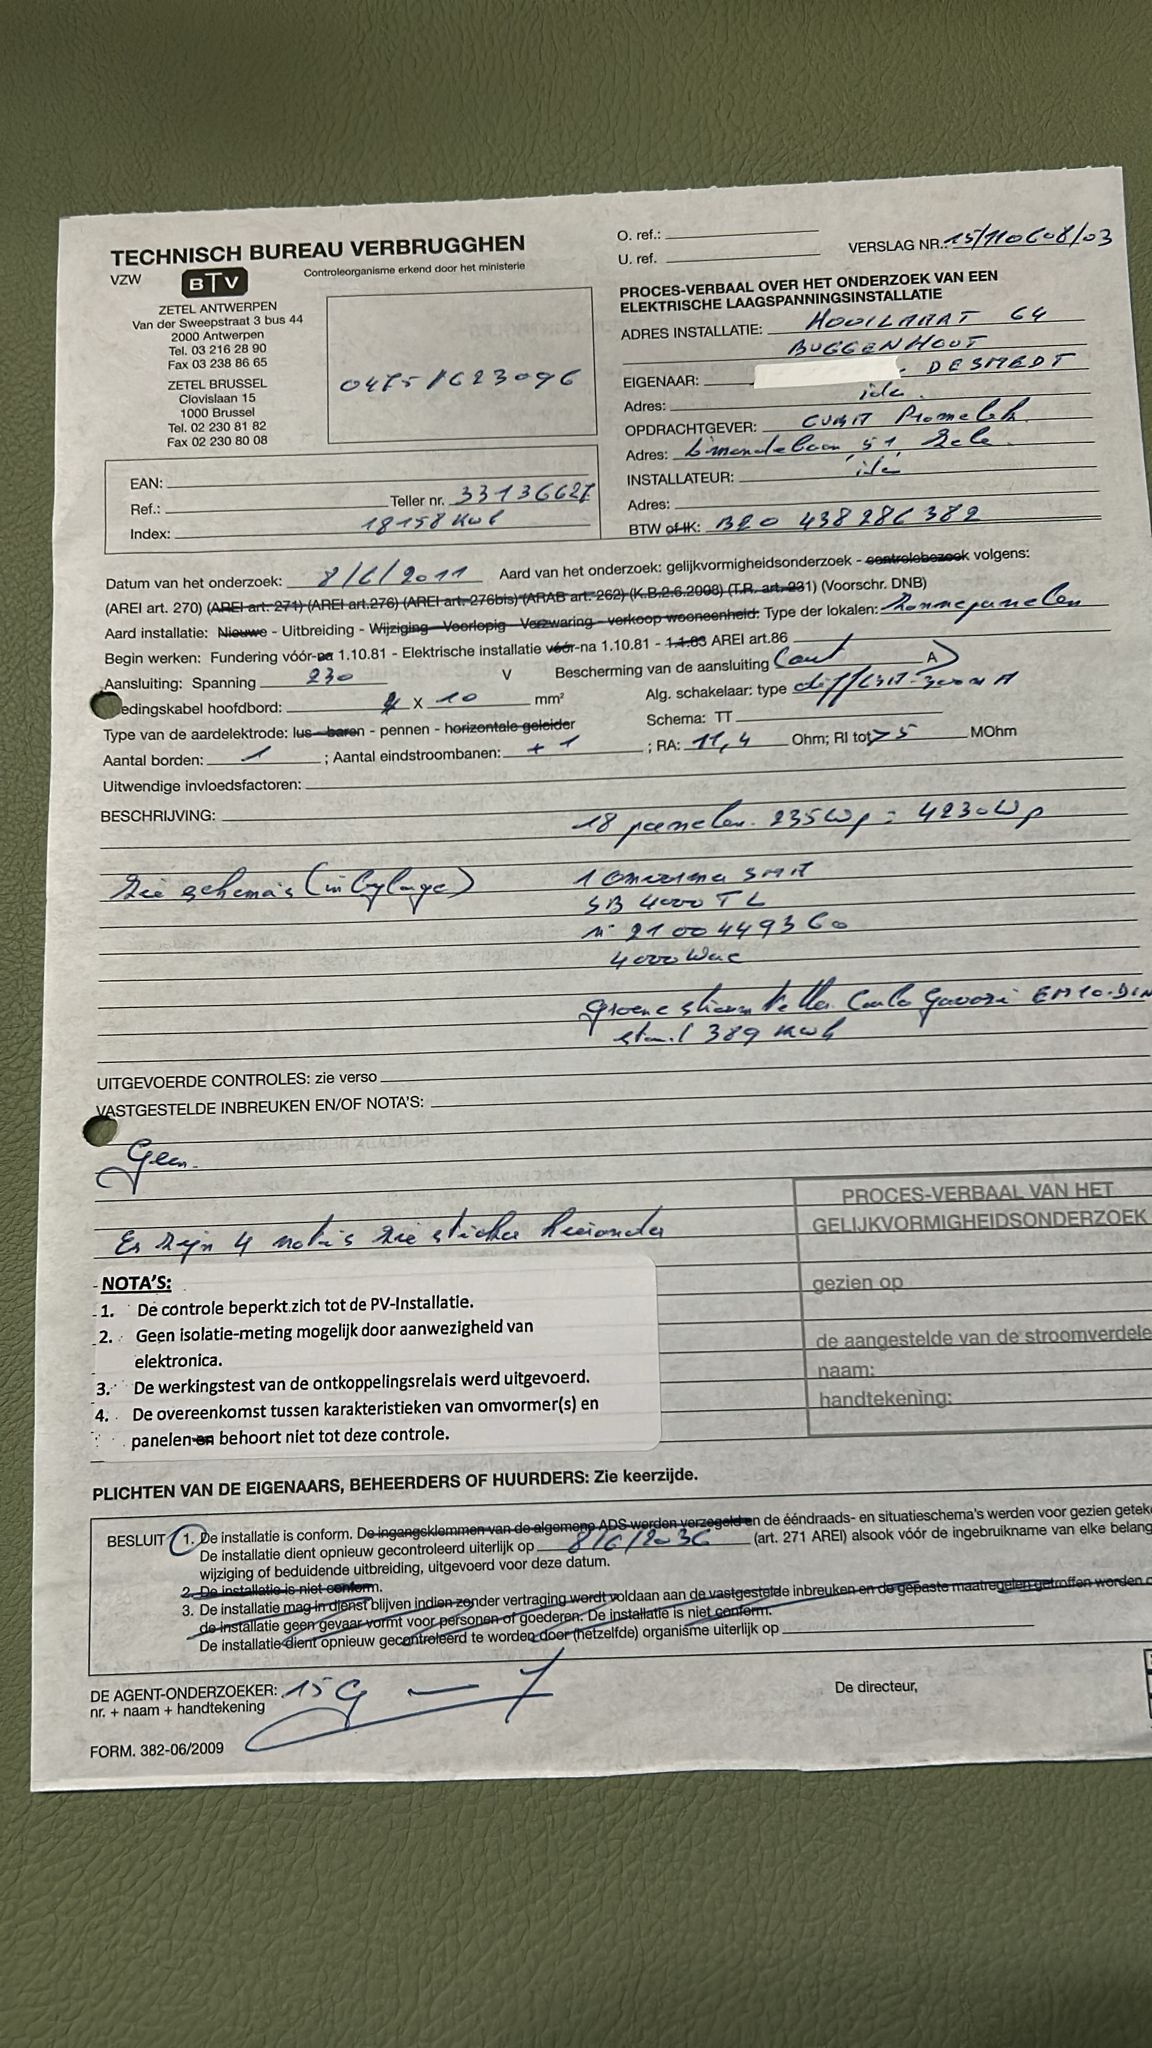 TECHNISCH BUREAU VERBRUGGHEN
VZW
BTV
Controleorganisme erkend door het ministerie
ZETEL ANTWERPEN
Van der Sweepstraat 3 bus 44
2000 Antwerpen
Tel. 03 216 28 90
Fax 03 238 86 65
ZETEL BRUSSEL
Clovislaan 15
1000 Brussel
Tel. 02 230 81 82
Fax 02 230 80 08
0475/623096
O. ref.:
U. ref.
VERSLAG NR.: 15/110608/03
PROCES-VERBAAL OVER HET ONDERZOEK VAN EEN
ELEKTRISCHE LAAGSPANNINGSINSTALLATIE
ADRES INSTALLATIE: 64
BUGGENHOUT
EIGENAAR: DESMEDT
Adres: idem
OPDRACHTGEVER:
Adres: 51, Zele
INSTALLATEUR: idem
Adres:
BTW of IK: B20 438 286 382
EAN:
Ref.:
Teller nr. 33136627
Index: 18158 kWh
Datum van het onderzoek: 8/6/2011 Aard van het onderzoek: gelijkvormigheidsonderzoek - controlebezoek volgens:
(AREI art. 270) (AREI art. 271) (AREI art.276) (AREI art. 276bis) (ARAB art. 262) (K.B.2.6.2008) (T.R. art. 231) (Voorschr. DNB)
Aard installatie: Nieuwe - Uitbreiding - Wijziging - Voorlopig - Verzwaring - verkoop wooneenheid. Type der lokalen: Zonnepanelen
Begin werken: Fundering vóór-na 1.10.81 - Elektrische installatie vóór-na 1.10.81 - 1.1.83 AREI art.86
Aansluiting: Spanning 230 V Bescherming van de aansluiting A
edingskabel hoofdbord: X 10 mm² Alg. schakelaar: type diff 300mA
Type van de aardelektrode: lus - baren - pennen - horizontale geleider Schema: TT
Aantal borden: 1 ; Aantal eindstroombanen: +1 ; RA: 11,4 Ohm; RI tot >5 MOhm
Uitwendige invloedsfactoren:
BESCHRIJVING:
18 panelen 235Wp = 4230Wp
Zie schema's (in bijlage)
1 omvormer SMA
SB 4000 TL
n° 2100449360
4000 Wac
Groene stroom teller Carlo Gavazzi EM10-DIN
stand 389 kWh
UITGEVOERDE CONTROLES: zie verso
VASTGESTELDE INBREUKEN EN/OF NOTA'S:
Geen.
Er zijn 4 nota's zie sticker hieronder
NOTA'S:
1. De controle beperkt zich tot de PV-Installatie.
2. Geen isolatie-meting mogelijk door aanwezigheid van
elektronica.
3. De werkingstest van de ontkoppelingsrelais werd uitgevoerd.
4. De overeenkomst tussen karakteristieken van omvormer(s) en
panelen en behoort niet tot deze controle.
PROCES-VERBAAL VAN HET
GELIJKVORMIGHEIDSONDERZOEK
gezien op
de aangestelde van de stroomverdele
naam:
handtekening:
PLICHTEN VAN DE EIGENAARS, BEHEERDERS OF HUURDERS: Zie keerzijde.
BESLUIT 1. De installatie is conform. De ingangsklemmen van de algemene ADS werden verzegeld en de ééndraads- en situatieschema's werden voor gezien geteke
De installatie dient opnieuw gecontroleerd uiterlijk op 8/6/2036 (art. 271 AREI) alsook vóór de ingebruikname van elke belang
wijziging of beduidende uitbreiding, uitgevoerd voor deze datum.
2. De installatie is niet conform.
3. De installatie mag in dienst blijven indien zonder vertraging wordt voldaan aan de vastgestelde inbreuken en de gepaste maatregelen getroffen worden
de installatie geen gevaar vormt voor personen of goederen. De installatie is niet conform.
De installatie dient opnieuw gecontroleerd te worden door (hetzelfde) organisme uiterlijk op
DE AGENT-ONDERZOEKER: 159
nr. + naam + handtekening
De directeur,
FORM. 382-06/2009